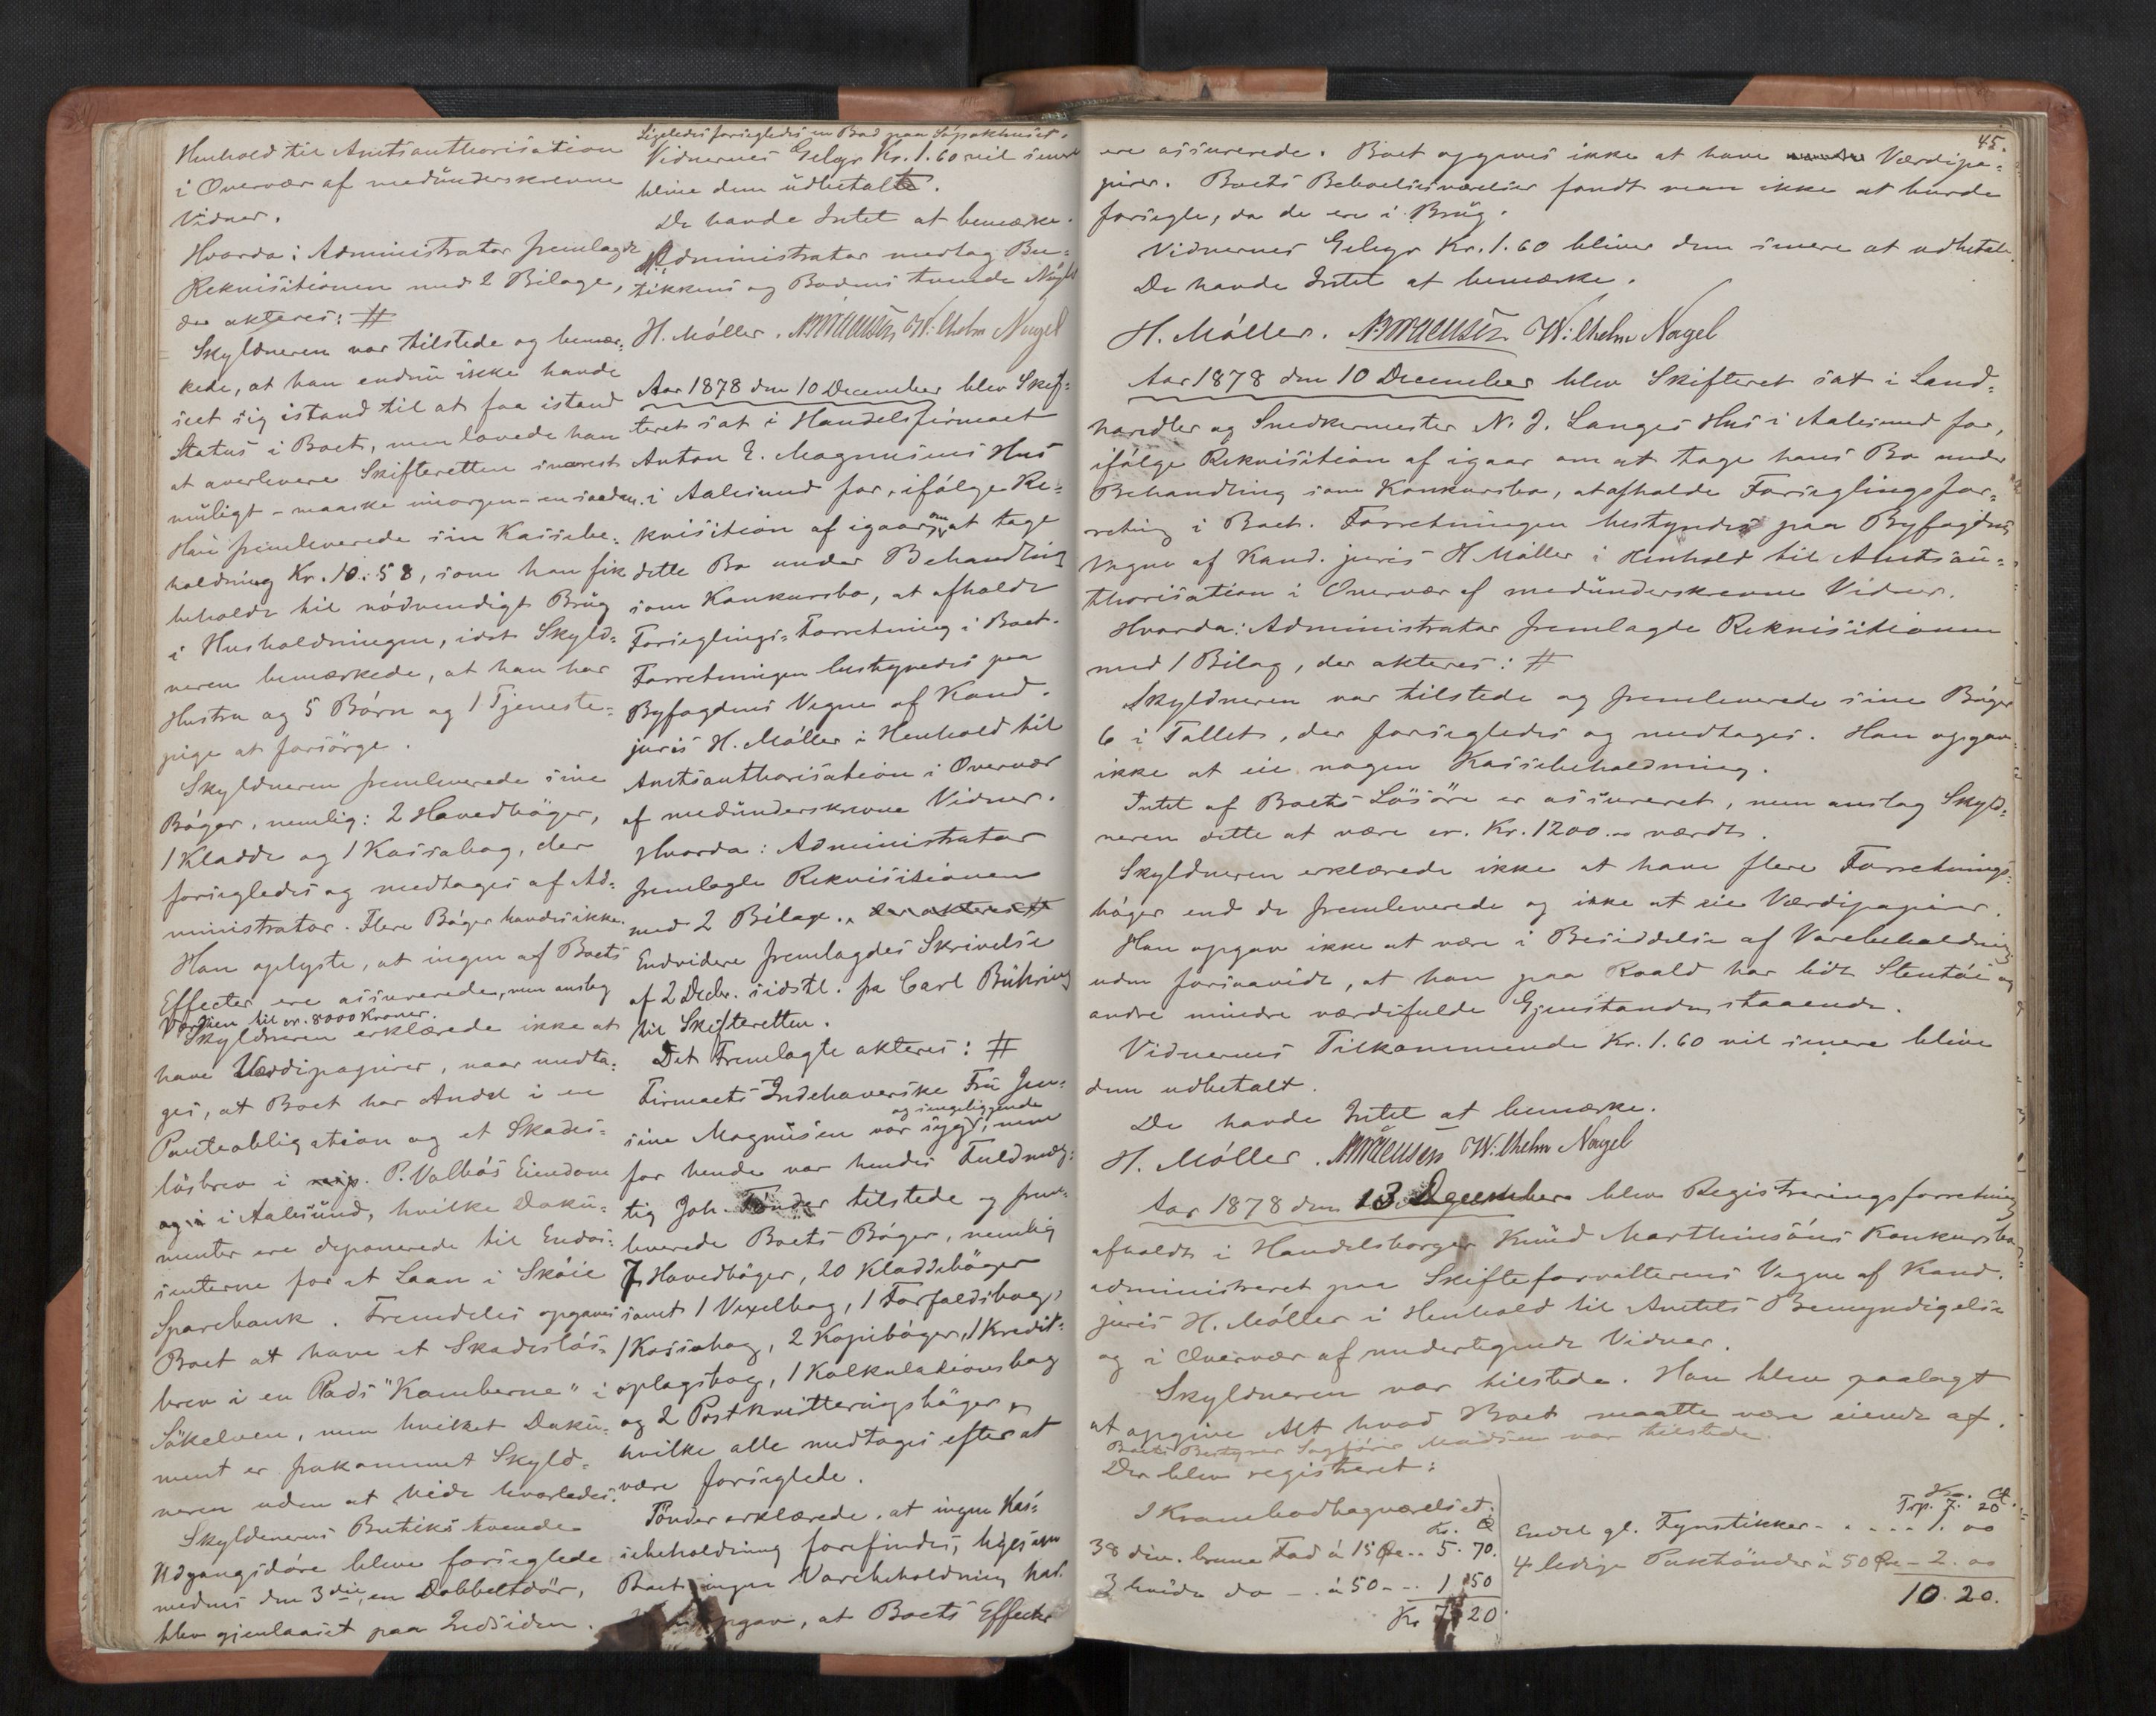 Henhold til Amtsauthorisation
i Overvær af medünderskrevne
Vidner.
Hvorda: Administrator fremlagde
Rekvisitionen med 2 Bilage,
der akteres: #
Skyldneren var tilstede og bemær-
kede, at han endnü ikke havde
seet sig istand til at faa istand
Status i Boet, men lovede han
at overlevere Skifteretten snarest
müligt - maaske imorgen - en saadan.
Han fremleverede sin Kassebe-
holdning Kr. 10.58, som han fik
beholde til nödvendigt Brüg
i Husholdningen, idet Skyld-
neren bemærkede, at han har
Hustru og 5 Börn og 1 Tjeneste-
pige at forsörge.
Skyldneren fremleverede sine
Böger, nemlig: 2 Hovedböger,
1 Kladde og 1 Kassabog, der
forsegledes og medtages af Ad-
ministrator. Flere Böger havdes ikke.
Han oplyste, at ingen af Boets
Effecter ere assurerede, men anslog
Værdien til cr. 8000 Kroner.
Skyldneren erklærede ikke at
have Værdipapirer, naar undta-
ges, at Boet har Andel i en
Panteobligation og et Skades-
lösbrev i P. Valbös Eiendom
i Aalesünd, hvilke Dokü-
menter ere deponerede til Endos-
senterne for et Laan i Sköie
Sparebank. Fremdeles opgaves
Boet at have et Skadeslös-
brev i en Plads "Kamberne" i
Sökelven, men hvilket Dokü-
ment er frakommet Skyld-
neren uden at vide hvorledes.
Skyldnerens Butiks tvende
Udgangsdöre bleve forseglede
medens den 3die, en Dobbeltdör,
blev gjenlaaset paa Indsiden.
Ligeledes forsegledes en Bod paa Söpakhuset.
Vidnernes Gebyr Kr. 1.60 vil senere
blive dem üdbetalt.
De havde Intet at bemærke.
Administrator medtog Bu-
tikkens og Bodens tvende Nögler
H. Möller. Wilhelm Nagel
Aar 1878 den 10 December blev Skif-
teret sat i Handelsfirmaet
Anton E. Magnusens Hus
i Aalesund for, ifölge Re-
kvisition af igaar om at tage
dette Bo under Behandling
som Konkursbo, at afholde
Forseglings-Forretning i Boet.
Forretningen bestyredes paa
Byfogdens Vegne af Kand.
juris H. Möller i Henhold til
Amtsauthorisation i Overvær
af medünderskrevne Vidner.
Hvorda: Administrator
fremlagde Rekvisitionen
med 2 Bilage. der akteres #
Endvidere fremlagdes Skrivelse
af 2 Decbr. sidstl. fra Carl Bühring
til Skifteretten.
Det Fremlagte akteres: #
Firmaets Indehaverske Frü Jen-
sine Magnüsen var syg og sengeliggende, men
for hende var hendes Fuldmæg-
tig Joh. Tönder tilstede og frem-
leverede Boets Böger, nemlig
7 Hovedböger, 20 Kladdeböger
samt 1 Vexelbog, 1 Forfaldsbog,
1 Kassabog, 2 Kopiböger, 1 Kredit-
oplagsbog, 1 Kalkulationsbog
og 2 Postkvitteringsböger,
hvilke alle medtages efter at
være forseglede.
Tönder erklærede, at ingen Kas-
sebeholdning forefindes, ligesom
Boet ingen Varebeholdning har.
opgav, at Boets Effecter
45.
ere assurerede. Boet opgaves ikke at have Værdipa-
pirer. Boets Beboelsesværelser fandt man ikke at burde
forsegle, da de ere i Brüg.
Vidnernes Gebyr Kr. 1.60 bliver dem senere at udbetale.
De havde Intet at bemærke.
H. Möller. Wilhelm Nagel
Aar 1878 den 10 December blev Skifteret sat i Land-
handler og Snedkermester N. J. Langes Hus i Aalesund for,
ifölge Rekvisition af igaar om at tage hans Bo under
Behandling som Konkursbo, at afholde Forseglingsfor-
retning i Boet. Forretningen bestyredes paa Byfogdens
Vegne af Kand. juris H Möller i Henhold til Amtsau-
thorisation i Overvær af medünderskrevne Vidner.
Hvorda: Administrator fremlagde Rekvisitionen
med 1 Bilag, der akteres: #
Skyldneren var tilstede og fremleverede sine Böger
6 i Tallet, der forsegledes og medtages. Han opgav
ikke at eie nogen Kassebeholdning.
Intet af Boets Lösöre er assureret, men anslog Skyld-
neren dette at være cr. Kr. 1200.00 værdt.
Skyldneren erklærede ikke at have flere Forretnings-
böger end de fremleverede og ikke at eie Værdipapirer.
Han opgav ikke at være i Besiddelse af Varebeholdning
uden forsaavidt, at han paa Roald har lidt Stentöi og
andre mindre værdifulde Gjenstande staaende.
Vidnernes Tilkommende Kr. 1.60 vil senere blive
dem udbetalt.
De havde Intet at bemærke.
H. Möller. Wilhelm Nagel
Aar 1878 den 13 December blev Registreringsforretning
afholdt i Handelsborger Knüd Marthinsöns Konkursbo
administreret paa Skifteforvalterens Vegne af Kand.
juris H. Möller i Henhold til Amtets Bemyndigelse
og i Overvær af undertegnede Vidner.
Skyldneren var tilstede. Han blev paalagt
at opgive Alt hvad Boet maatte være eiende af.
Boets Bestyrer Sagförer Madsen var tilstede.
Der blev registreret:
I Krambodbagværelset:
Kr. Ø
38 div. brune Fad á 15 Øre.. 5. 70.
3 hvide do - . á 50 - .. 1 50
Kr 7 20.
Kr. Ø.
Trp. 7. 20
Endel gl. Fyrstikker - . . . . 1. 00
4 ledige Paktönder á 50 Øre - 2. 00
10. 20.